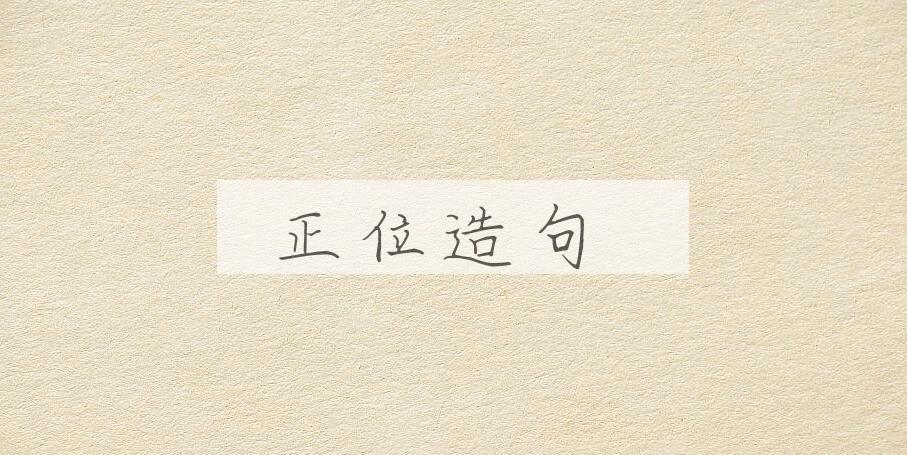 正位造句